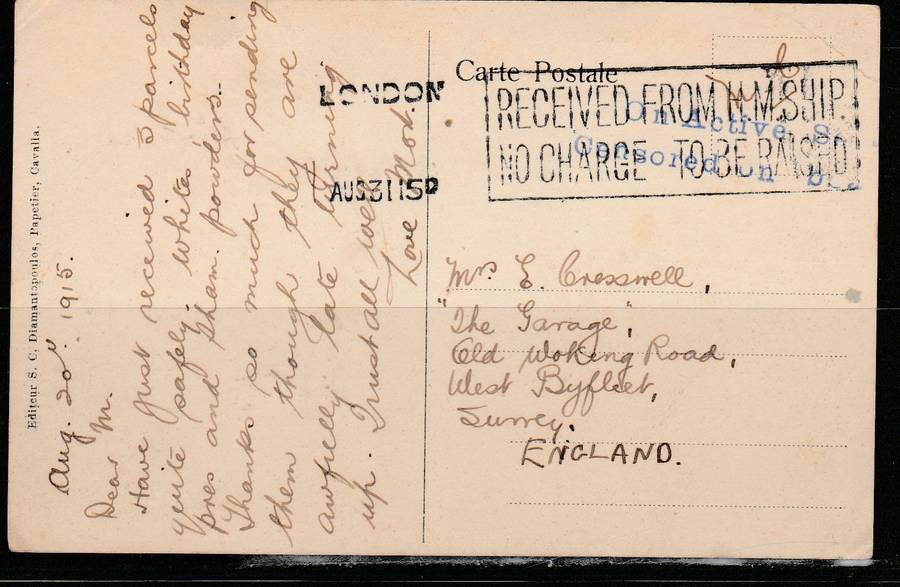 Editeur S. C. Diamantopoulos, Papetier, Cavalla.
Aug. 20" 1915.
Dear M.
Have just received 3 parcels
quite safely, whites birthday
pres and Sham. powders.
Thanks so much for sending
them though they are
awfully late turning
up. Trust all well
Love
LONDON
AUG 31 15
Carte Postale
RECEIVED FROM H.M. SHIP.
NO CHARGE TO BE RAISED
On Active S
Censored
Mrs E. Cresswell,
"The Garage",
Old Woking Road,
West Byfleet,
Surrey.
ENGLAND.